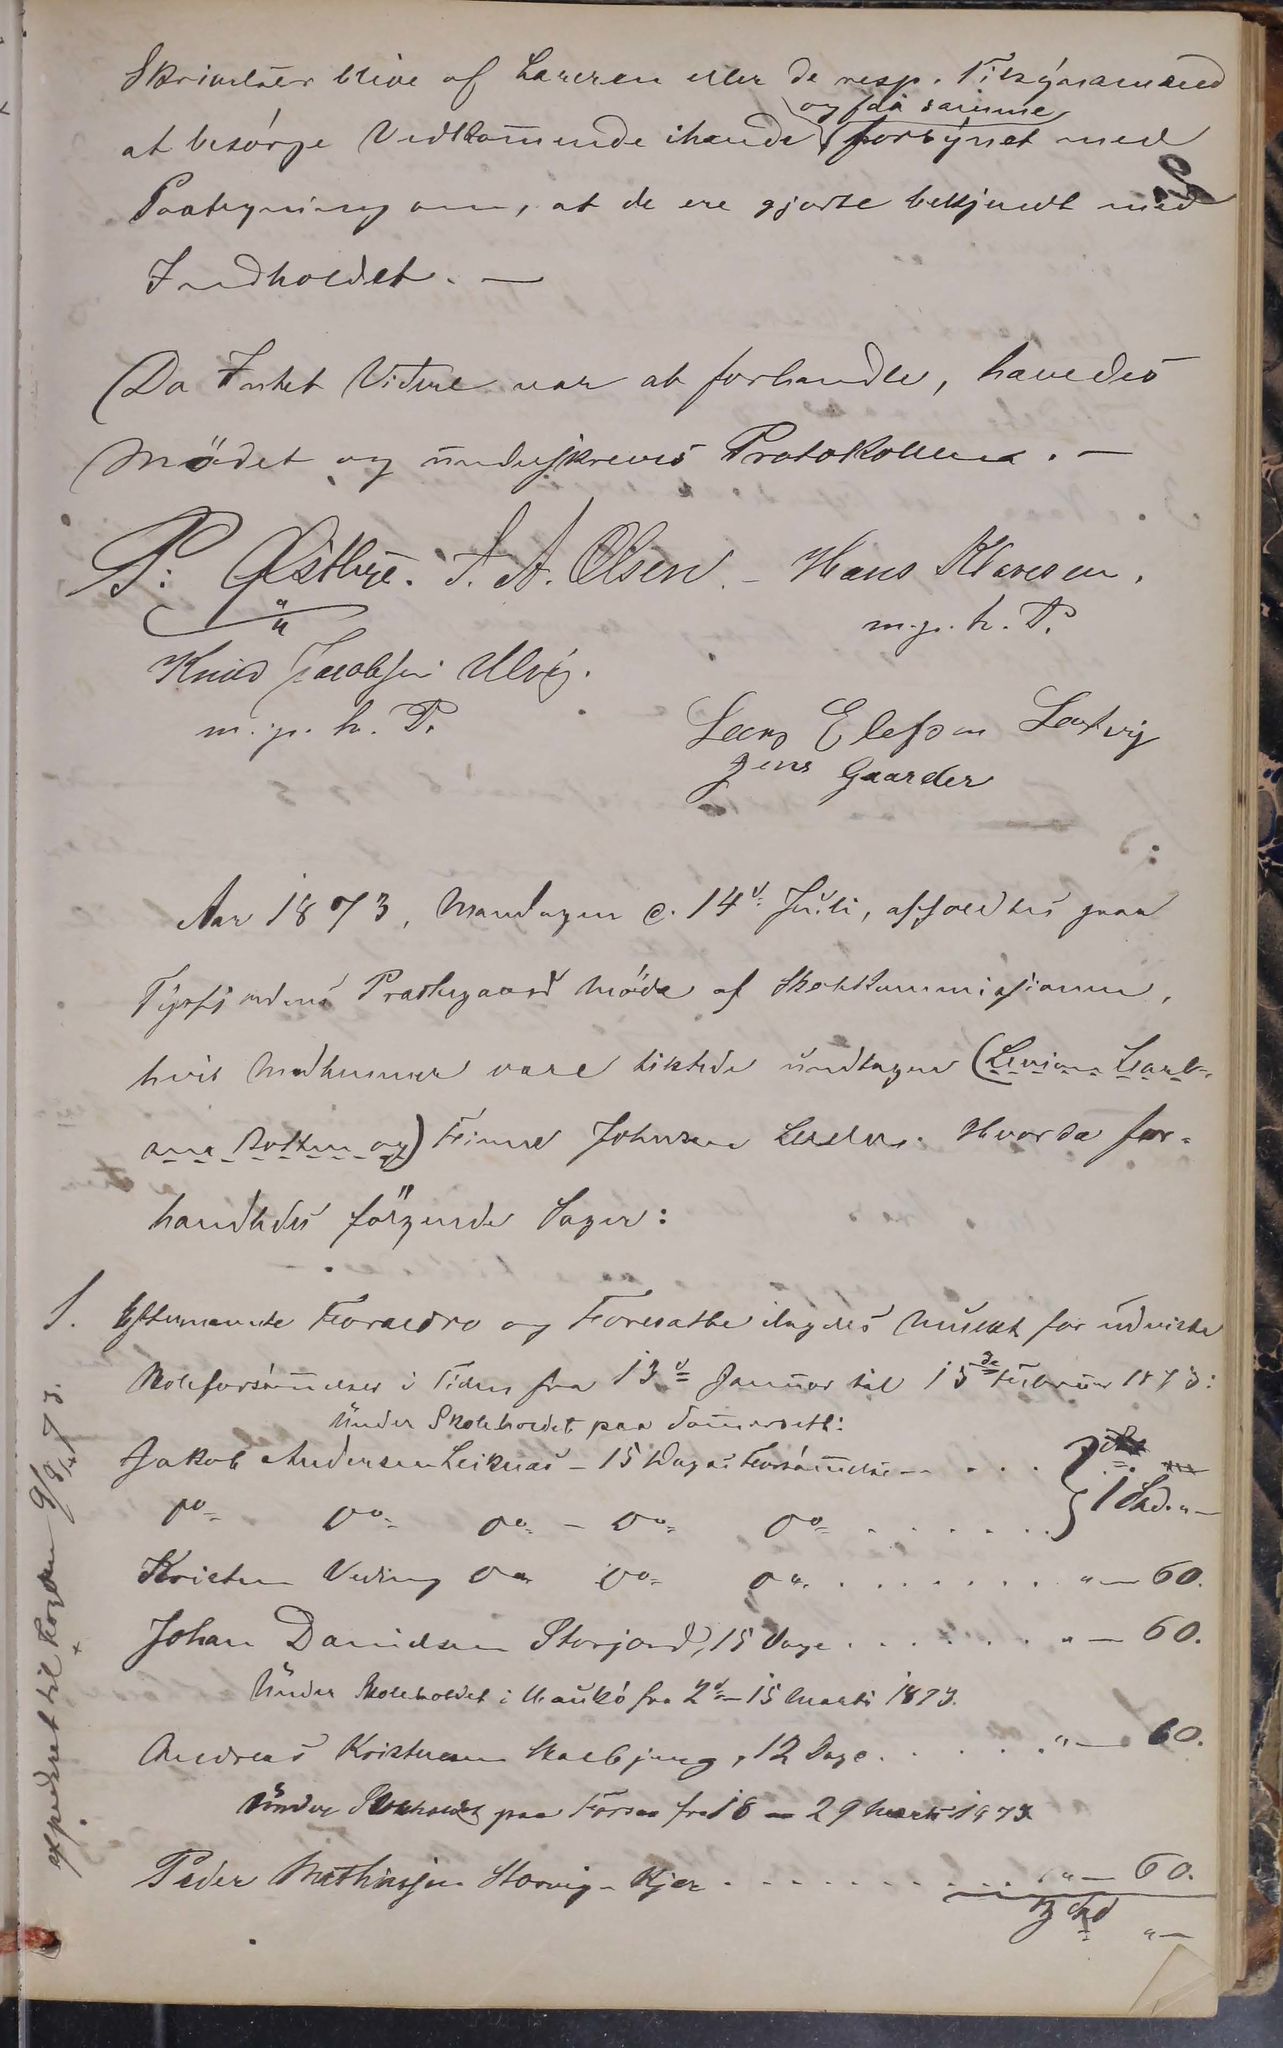 Skrivelser blive af Læreren eller de resp. Tilsynsmænd
og faa samme
at besørge Vedkommende ihænde forsynet med
Paategning om, at de ere gjorte bekjendt med
Indholdet. —
Da Intet Videre var at forhandle, hævedes
Mödet og underskreves Protokollen. —
P. Østbye. S. A. Olsen. – Hans Klaresen.
m. p. h. P.
Knud Jacobsen Ulvig.
m. p. h. P.
Lars Elefsen Leotvig
Jens Gaarder
Aar 1873, Mandagen d. 14d Juli, afholdtes paa
Tysfjordens Præstegaard Möde af Skolekommissionen,
hvis Medlemmer vare tilstede undtagen (
og) Feinne Johnsen . Hvorda for-
handledes følgende Sager:
1. Efternævnte Forældre og Foresatte ilagdes Mulkt for udviste
Skoleforsömmelser i Tiden fra 13d Januar til 15de Februar 1873:
Under Skoleholdet paa :
Jakob Andersen Leiknæs – 15 Dages Forsömmelse – . . .
Do Do Do – Do Do . . . . . . . } 1 Spd. " —
Kristen Do Do Do . . . . . . . . " — 60.
Johan Danielsen Storjord, 15 Dage . . . . . . . " — 60.
Under Skoleholdet i fra 2d – 15 Marts 1873.
Andreas Kristensen , 12 Dage . . . . . . " — 60.
Under Skoleholdet paa Forsaa fra 18 – 29 Marts 1873
Peder Mathissen Storvig – Kjær . . . . . . . . . " — 60.
Spd " —
expederet til Fogden 9/8 73.